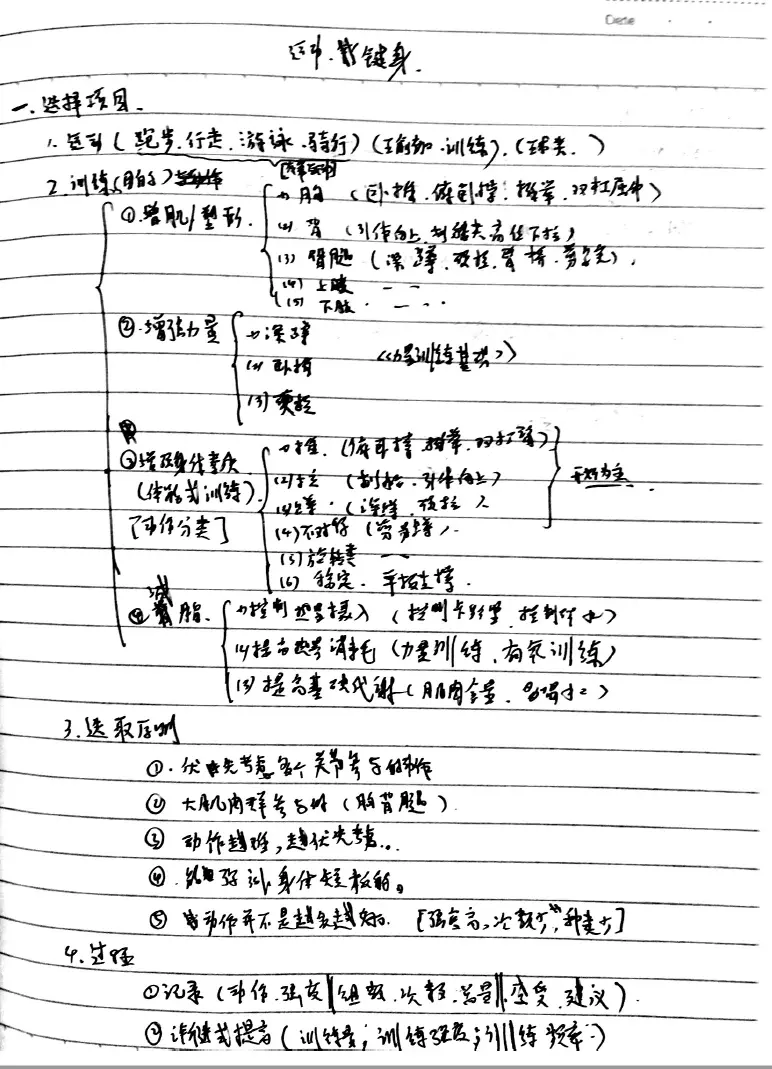 Date
运动.健身.
一.选择项目.
1.运动(跑步.行走.游泳.骑行)(瑜伽.训练).(球类.)
2.训练(目的)
①.增肌/塑形.
(1)胸 (卧推.俯卧撑.推举.双杠屈伸)
(2)背 (引体向上.划船.高位下拉)
(3)臀腿 (深蹲.硬拉.臀桥.剪蹲).
(4)上肢 — —
(5)下肢 — —
②.增强力量
(1)深蹲
(2)卧推 《力量训练基础》
(3)硬拉
③增强身体素质
(体能式训练)
[动作分类]
(1)推.(俯卧撑.推举.双杠)
(2)拉 (划船.引体向上)
(3)蹲.(深蹲.硬拉)
(4)不对称 (剪蹲).
(5)旋转类 —
(6)稳定.平板支撑.
为主.
④减脂.
(1)控制热量摄入 (控制卡路里.控制什么)
(2)提高热量消耗 (力量训练.有氧训练)
(3)提高基础代谢 (肌肉含量.)
3.选取原则
①.优先考虑多个关节参与的动作
②大肌肉群参与 (胸背腿)
③动作越难,越优先考虑..
④.身体短板的。
⑤动作并不是越多越好的. [强度高,次数少,种类少]
4.过程
①记录 (动作.强度.组数.次数.总量.感受.建议).
②渐进式提高 (训练量;训练强度;训练频率)